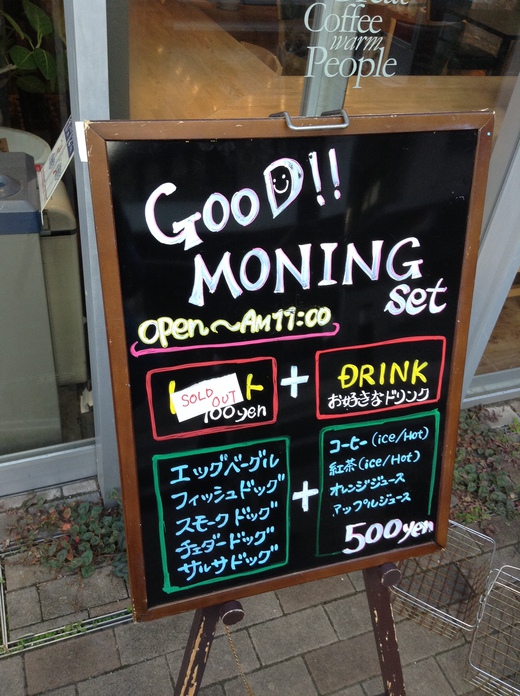 Coffee
warm
People
GOOD!!
MONING
set
open～AM11:00
SOLD OUT
100yen
+
DRINK
お好きなドリンク
エッグベーグル
フィッシュドッグ
スモークドッグ
チェダードッグ
サルサドッグ
+
コーヒー(ice/Hot)
紅茶(ice/Hot)
オレンジジュース
アップルジュース
500yen